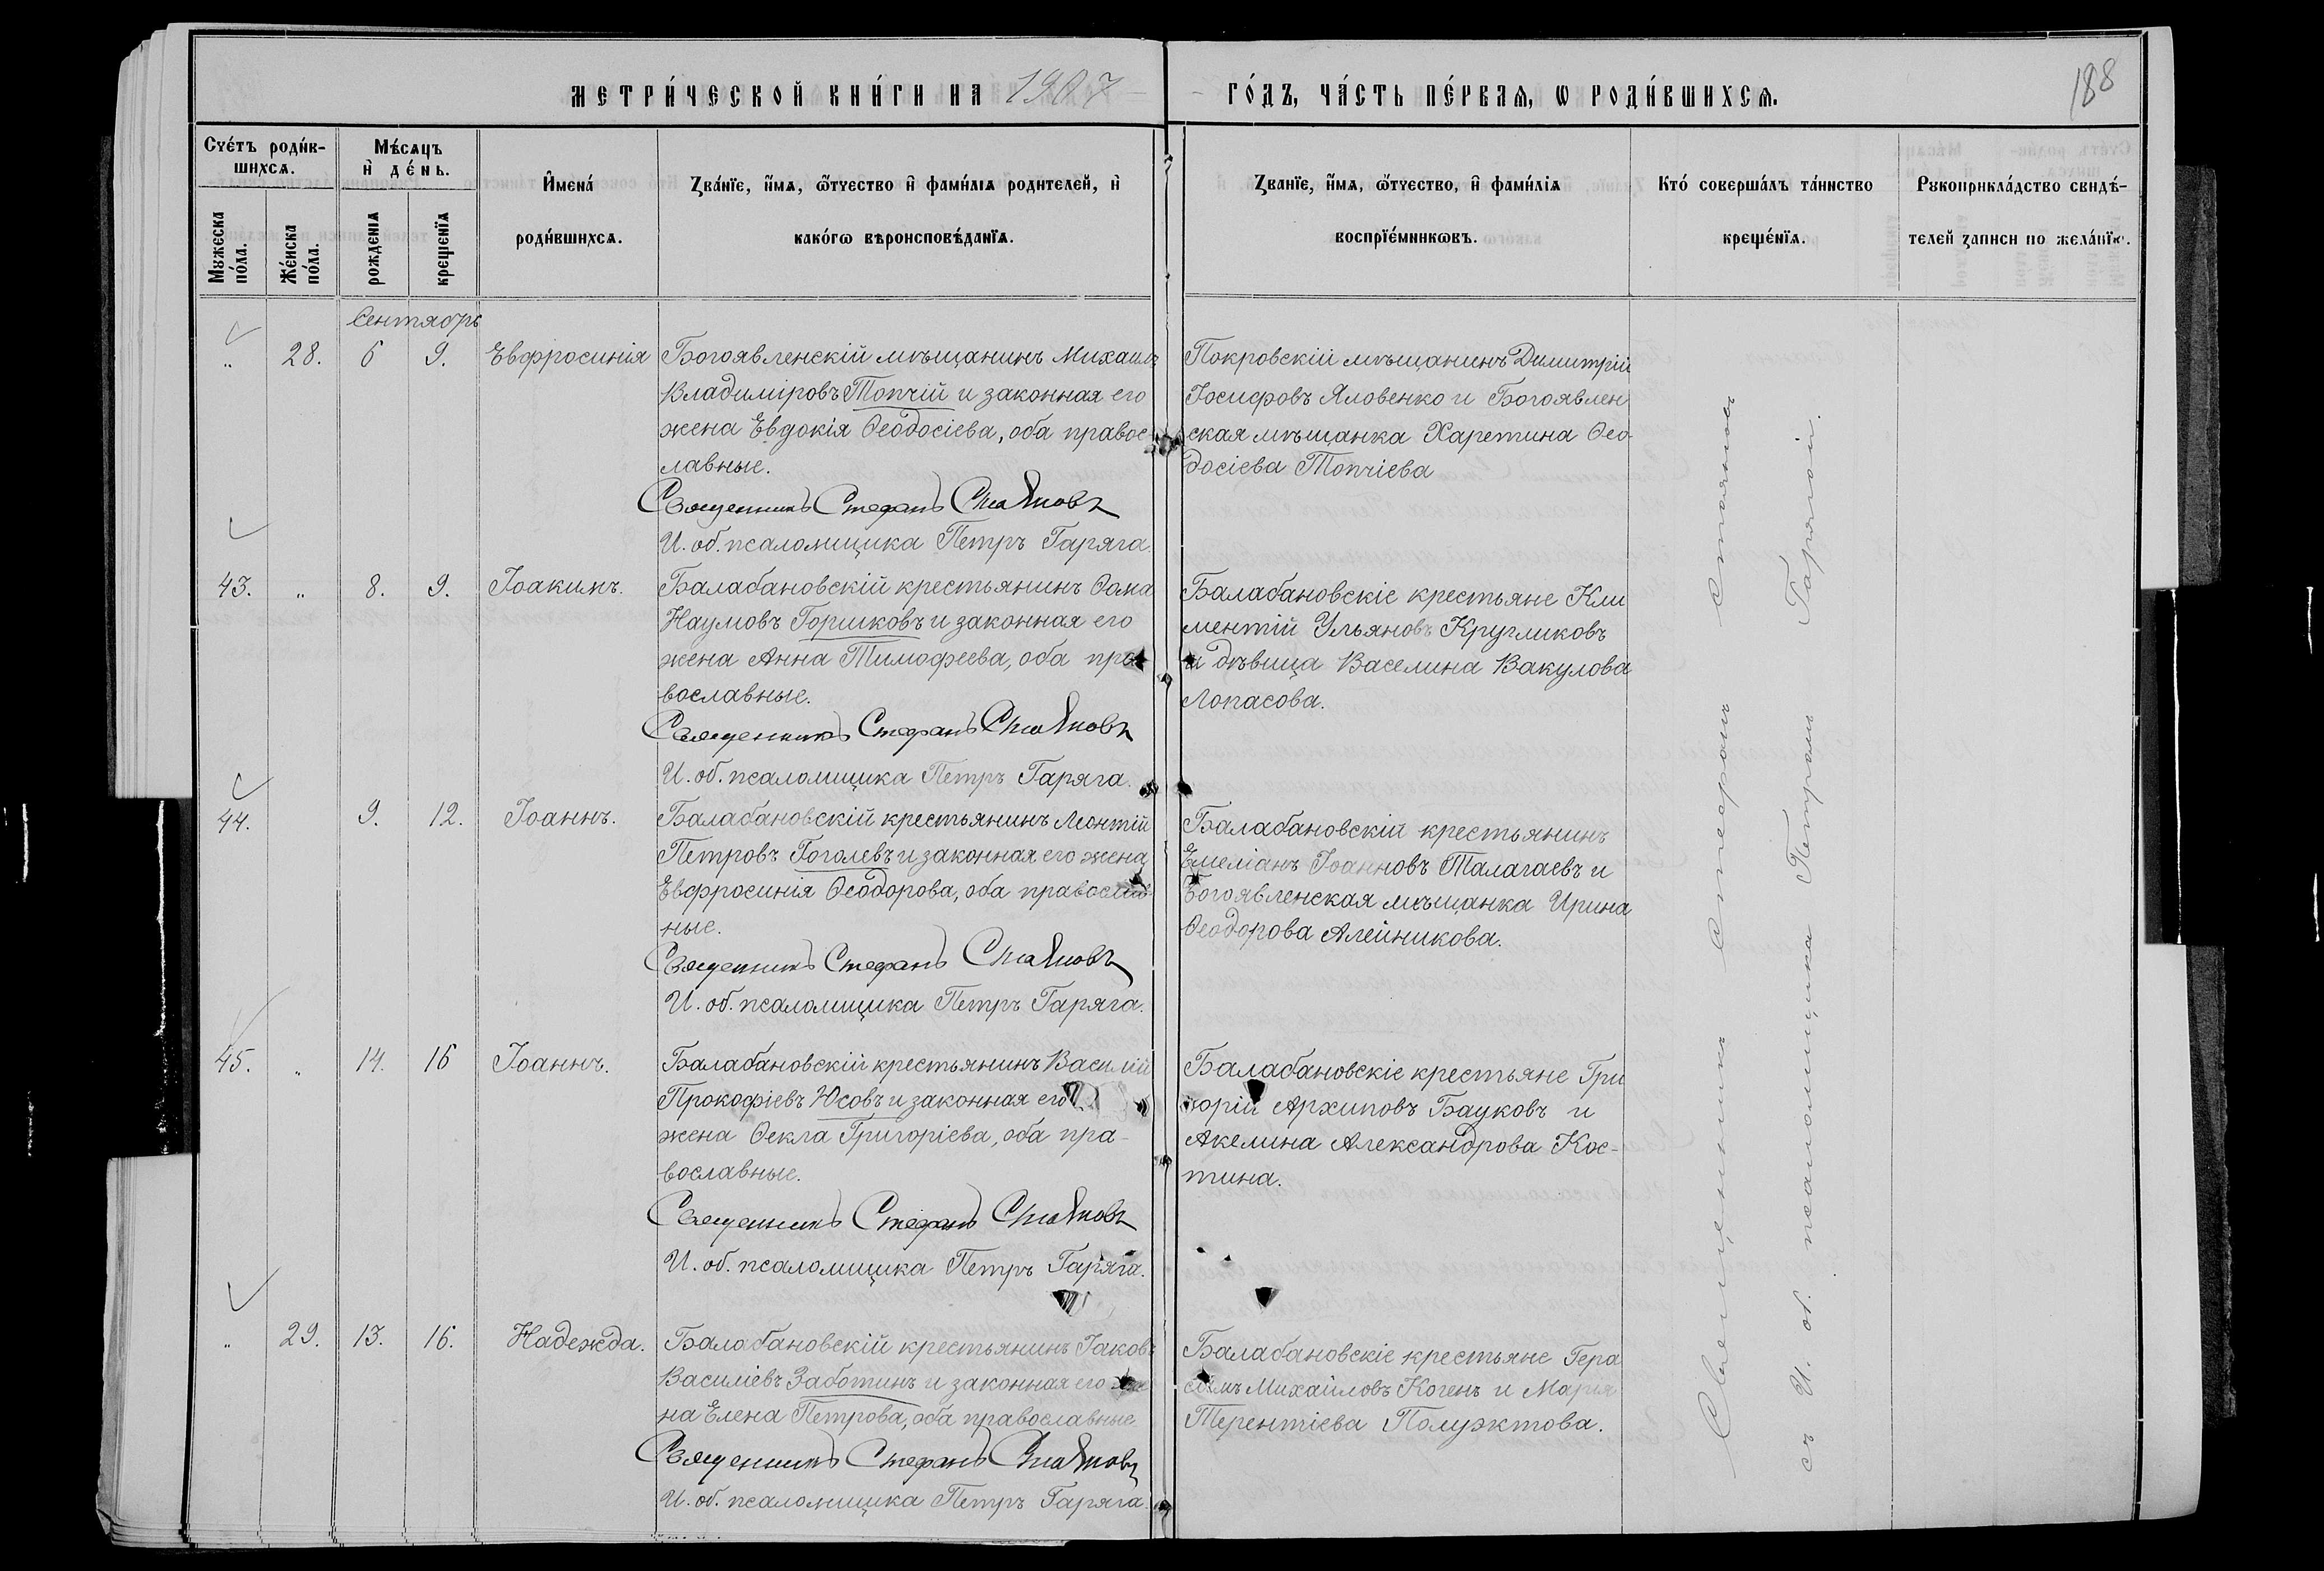 МЕТРИ́ЧЕСКОЙ КНИ́ГИ НА 1907
ГО́ДЪ, ЧА́СТЬ ПЕ́РВАѦ, Ѡ РОДИ́ВШИХСѦ.
188
Счéтъ роди́в-
шихсѧ.
Мꙋжеска
пóла.
Жéнска
пóла.
Мѣ́сѧцъ
и҆ дéнь.
рожденїѧ
крещенїѧ
И҆мена́
роди́вшихсѧ.
Зва́нїе, и҆́мѧ, ѻ҆́тчество и҆ фами́лїѧ родителей, и҆
како́гѡ вѣроисповѣ́данїѧ.
Званїе, и҆́мѧ, ѻ҆́тчество, и҆ фами́лїѧ
воспрїéмникѡвъ.
Кто́ соверша́лъ та́инство
крещéнїѧ.
Рꙋкоприкла́дство свидѣ́-
телей записи по жела́нїю.
Сентябрь
„ 28. 6 9. Евфросинія
Богоявленскій мѣщанинъ Михаилъ
Владиміровъ Топчій и законная его
жена Евдокія Ѳеодосіева, оба правос-
лавные.
Священникъ Стефанъ Стояновъ
И. об. псаломщика Петръ Гаряга.
Покровскій мѣщанинъ Димитрій
Іосифовъ Яловенко и Богоявлен
ская мѣщанка Харетина Ѳео-
досіева Топчіева
43. „ 8. 9. Іоакимъ.
Балабановскій крестьянинъ Ѳома
Наумовъ Горшковъ и законная его
жена Анна Тимофеева, оба пра-
вославные.
Священникъ Стефанъ Стояновъ
И. об. псаломщика Петръ Гаряга.
Балабановскіе крестьяне Кли
ментій Ульяновъ Кругликовъ
и дѣвица Василина Вакулова
Лопасова.
44. 9. 12. Іоаннъ.
Балабановскій крестьянинъ Леонтій
Петровъ Гоголевъ и законная его жена
Евфросинія Ѳеодорова, оба православ-
ные.
Священникъ Стефанъ Стояновъ
И. об. псаломщика Петръ Гаряга.
Балабановскій крестьянинъ
Емеліанъ Іоанновъ Талагаевъ и
Богоявленская мѣщанка Ирина
Ѳеодорова Алейникова.
45. „ 14. 16 Іоаннъ.
Балабановскій крестьянинъ Василій
Прокофіевъ Юсовъ и законная его
жена Ѳекла Григоріева, оба пра-
вославные.
Священникъ Стефанъ Стояновъ
И. об. псаломщика Петръ Гаряга.
Балабановскіе крестьяне Гри
горій Архиповъ Бауковъ и
Акелина Александрова Кос-
тина.
„ 29. 13. 16. Надежда.
Балабановскій крестьянинъ Іаковъ
Василіевъ Заботинъ и законная его же
на Елена Петрова, оба православные
Священникъ Стефанъ Стояновъ
И. об. псаломщика Петръ Гаряга.
Балабановскіе крестьяне Гера
симъ Михайловъ Когенъ и Марія
Терентіева Полуэктова.
Священникъ Стефанъ Стояновъ
съ И. об. псаломщика Петромъ Гарягой.